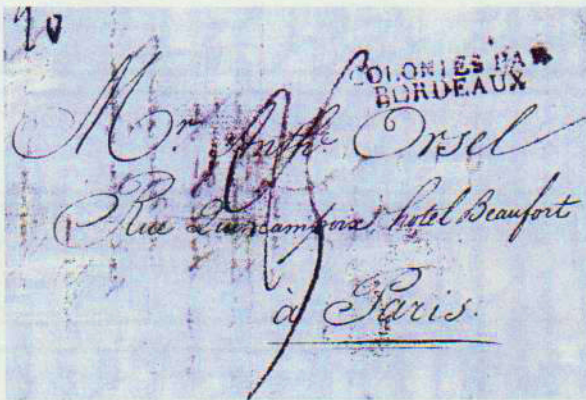 COLONIES PAR
BORDEAUX
Mr. Anth. Orsel
Rue Quincampoix hotel Beaufort
à Paris.